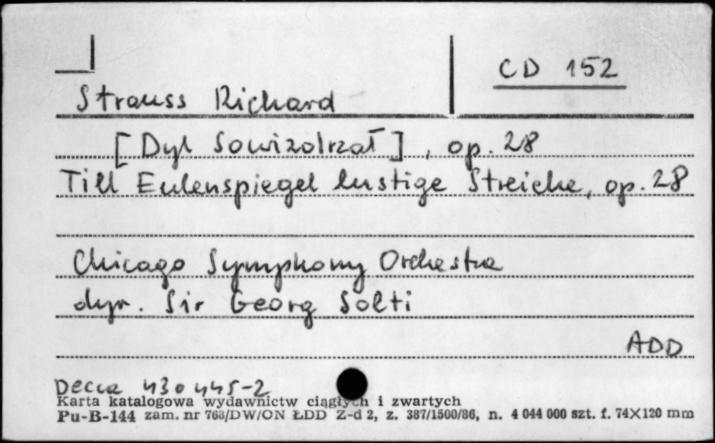 CD 152
Strauss Richard
[Dyl Sowizdrzał], op. 28
Till Eulenspiegel lustige Streiche, op. 28
Chicago Symphony Orchestra
dyr. Sir Georg Solti
ADD
Decca 430 445-2
Karta katalogowa wydawnictw ciągłych i zwartych
Pu-B-144 zam. nr 763/DW/ON ŁDD Z-d 2, z. 387/1500/86, n. 4 044 000 szt. f. 74X120 mm